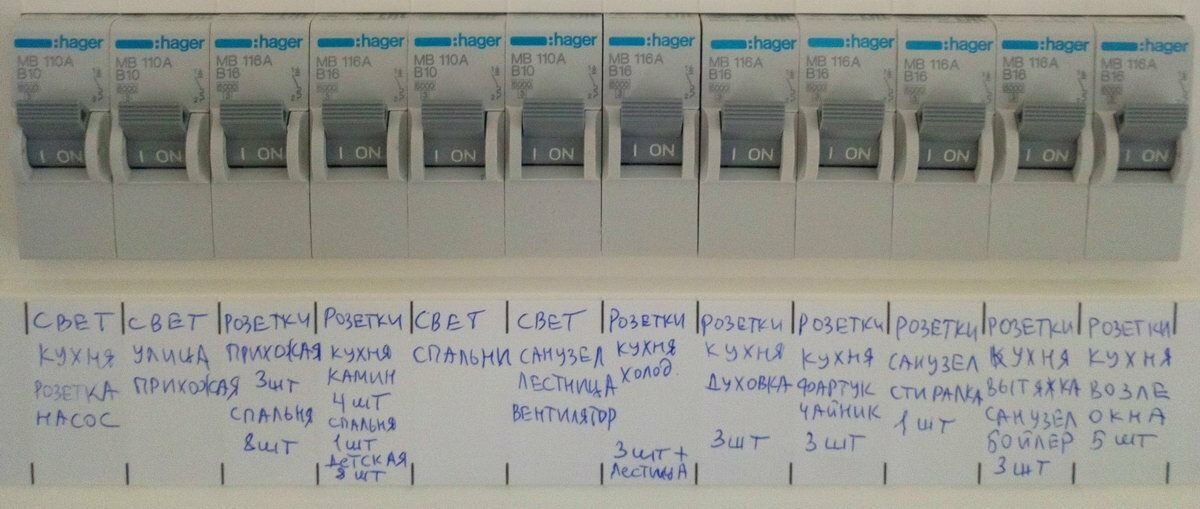 :hager
MB 110A
B10
I ON
:hager
MB 110A
B10
I ON
:hager
MB 116A
B16
I ON
:hager
MB 116A
B16
I ON
:hager
MB 110A
B10
I ON
:hager
MB 110A
B10
I ON
:hager
MB 116A
B16
I ON
:hager
MB 116A
B16
I ON
:hager
MB 116A
B16
I ON
:hager
MB 116A
B16
I ON
:hager
MB 116A
B16
I ON
:hager
MB 116A
B16
I ON
СВЕТ
КУХНЯ
РОЗЕТКА
НАСОС
СВЕТ
УЛИЦА
ПРИХОЖАЯ
РОЗЕТКИ
ПРИХОЖАЯ
3шт
СПАЛЬНЯ
8шт
РОЗЕТКИ
КУХНЯ
КАМИН
4шт
СПАЛЬНЯ
1шт
ДЕТСКАЯ
8 шт
СВЕТ
СПАЛЬНИ
СВЕТ
САНУЗЕЛ
ЛЕСТНИЦА
ВЕНТИЛЯТОР
РОЗЕТКИ
КУХНЯ
ХОЛОД.
3шт+
ЛЕСТИЦА
РОЗЕТКИ
КУХНЯ
ДУХОВКА
3шт
РОЗЕТКИ
КУХНЯ
ФАРТУК
ЧАЙНИК
3шт
РОЗЕТКИ
САНУЗЕЛ
СТИРАЛКА
1шт
РОЗЕТКИ
КУХНЯ
ВЫТЯЖКА
САНУЗЕЛ
БОЙЛЕР
3шт
РОЗЕТКИ
КУХНЯ
ВОЗЛЕ
ОКНА
5 шт